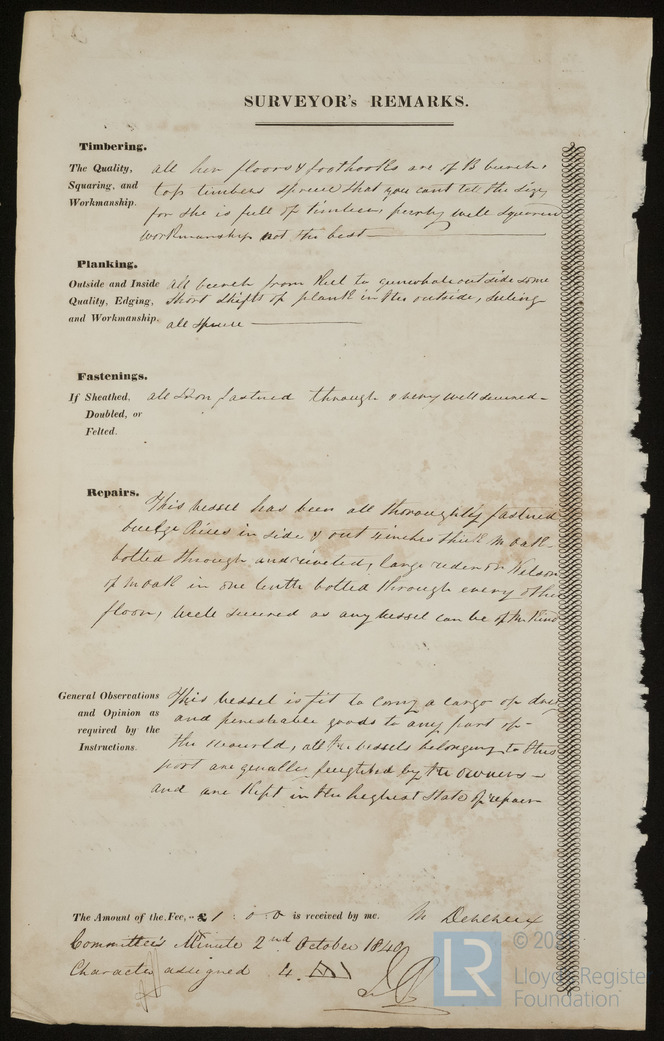 SURVEYOR's REMARKS.
Timbering.
The Quality, Squaring, and Workmanship.
all her floors & foothooks are of B burch.
top timbers spruce that you cant tell the size
for she is full of timber, pretty well squared
workmanship not the best
Planking.
Outside and Inside Quality, Edging, and Workmanship.
all burch from Keel to gunwhale outside some
short shifts of plank in the outside, seeling
all spruce
Fastenings.
If Sheathed, Doubled, or Felted.
all Iron fastned through & very well secured
Repairs.
This vessel has been all thoroughly fastned
in side & out 4 inches thick oak
bolted through and riveted, large rider or Kelson
of oak in one lenth bolted through every other
floor, well secured as any vessel can be of the kind
General Observations and Opinion as required by the Instructions.
This vessel is fit to carry a cargo of dry
and perishable goods to any part of
the world, all the vessels belonging to this
port are by the owners
and are kept in the highest state of repair
The Amount of the Fee, £1 : 0 : 0 is received by me. M
Committee's Minute 2nd October 1840
Character assigned 4
LR
© 20
Lloyd's Register
Foundation